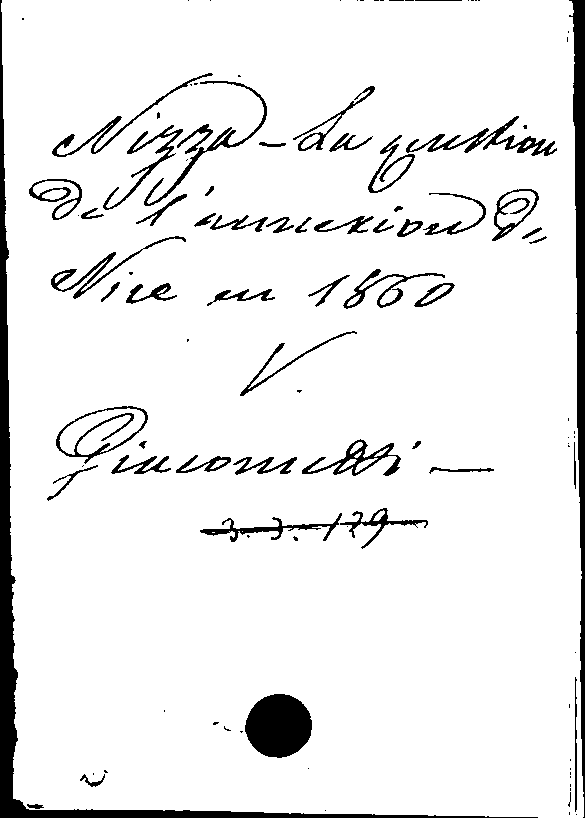 Nizza - La question
de l'annexion de
Nice en 1860
V.
Giacometti -
3.3.129